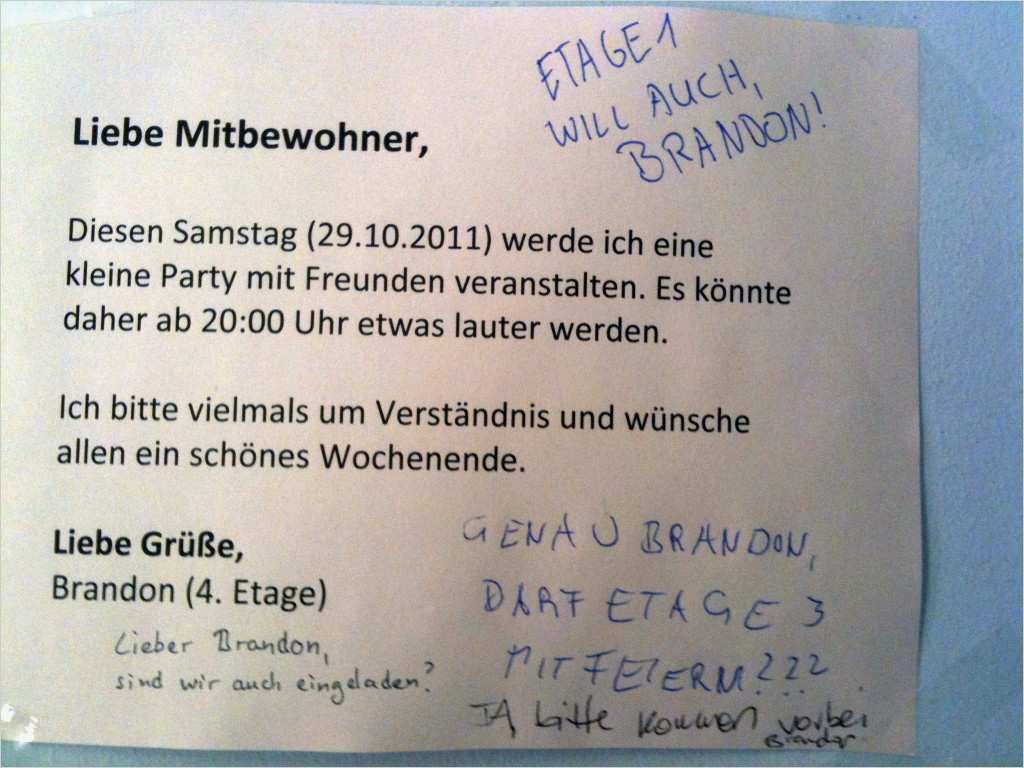 ETAGE 1
WILL AUCH,
BRANDON!
Liebe Mitbewohner,
Diesen Samstag (29.10.2011) werde ich eine
kleine Party mit Freunden veranstalten. Es könnte
daher ab 20:00 Uhr etwas lauter werden.
Ich bitte vielmals um Verständnis und wünsche
allen ein schönes Wochenende.
Liebe Grüße,
Brandon (4. Etage)
Lieber Brandon,
sind wir auch eingeladen?
GENAU BRANDON,
DARF ETAGE 3
MITFEIERN???
JA, bitte kommen vorbei
Brandon